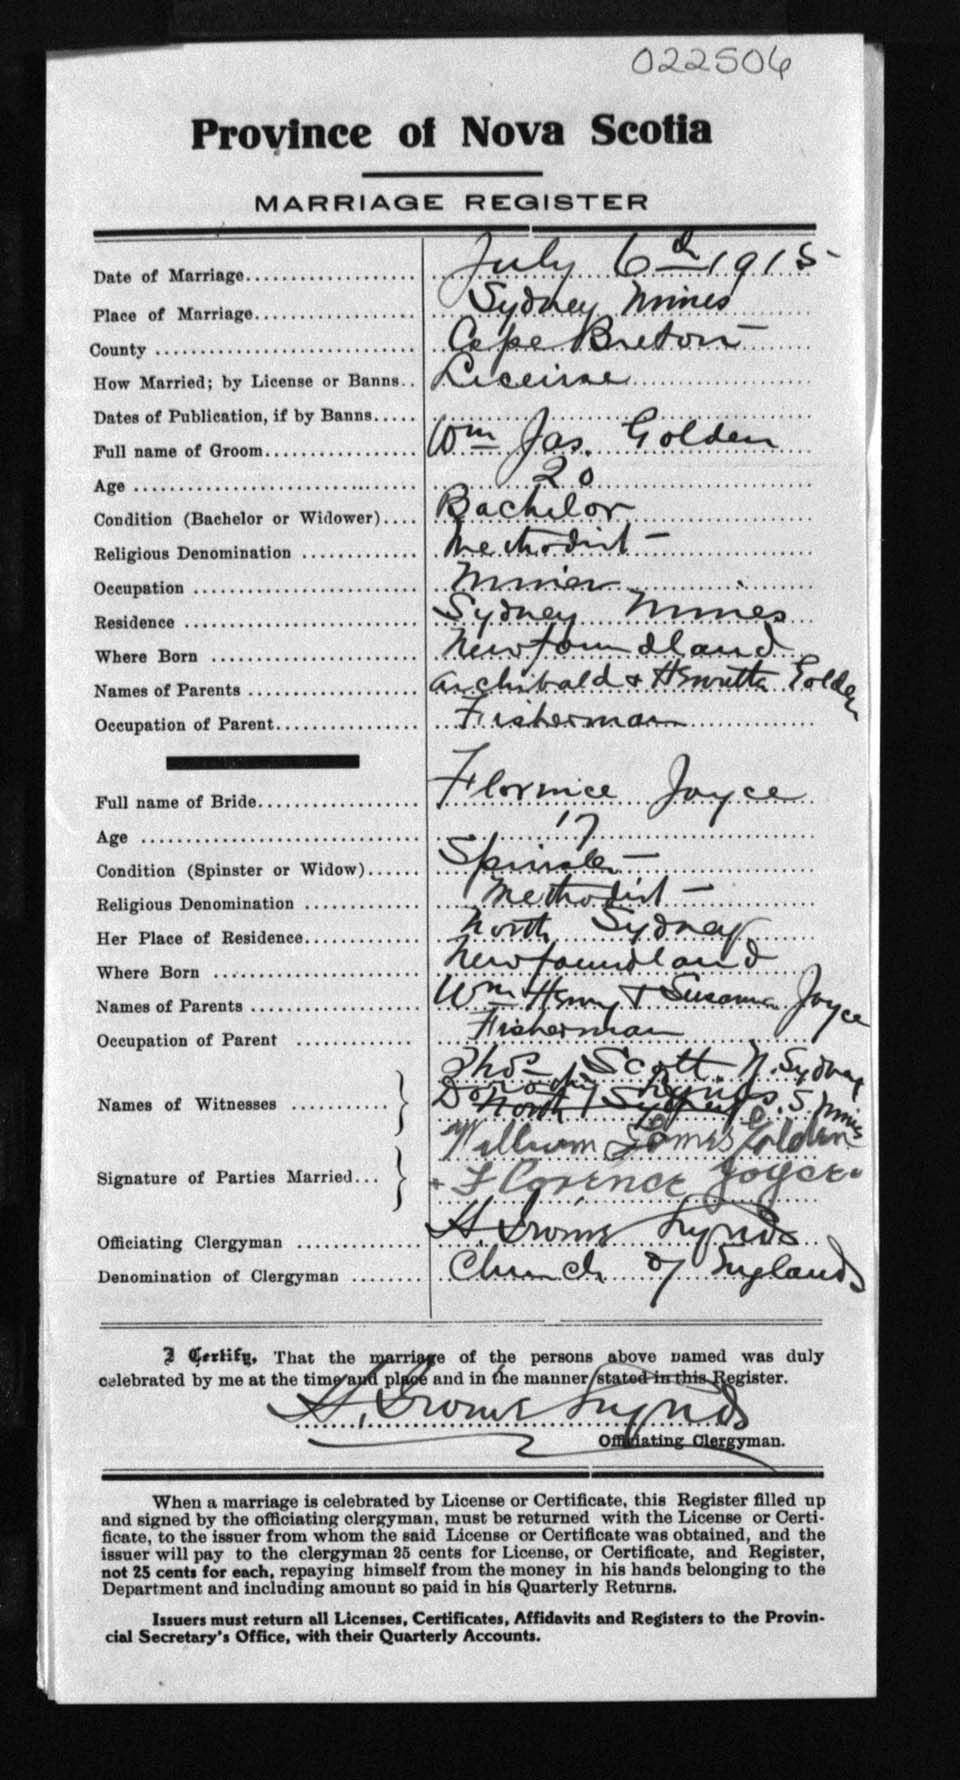 022506
Province of Nova Scotia
MARRIAGE REGISTER
Date of Marriage.................... July 6th 1915
Place of Marriage................... Sydney Mines
County .............................. Cape Breton
How Married; by License or Banns.. License
Dates of Publication, if by Banns.....
Full name of Groom.................. Wm Jas. Golden
Age .................................. 20
Condition (Bachelor or Widower).... Bachelor
Religious Denomination ............. Methodist
Occupation .......................... Miner
Residence ........................... Sydney Mines
Where Born ......................... Newfoundland
Names of Parents ................... Archibald & Henrietta Golden
Occupation of Parent................ Fisherman
Full name of Bride.................. Florence Joyce
Age ................................. 17
Condition (Spinster or Widow)...... Spinster
Religious Denomination ............. Methodist
Her Place of Residence.............. North Sydney
Where Born ......................... Newfoundland
Names of Parents ................... Wm Henry & Susanna Joyce
Occupation of Parent ............. Fisherman
Thos Scott N. Sydney
Names of Witnesses ........... Dorothy S. Mines
North Sydney
William James Golden
Signature of Parties Married... + Florence Joyce
Officiating Clergyman .............. H. Lynds
Denomination of Clergyman ........ Church of England
I Certify, That the marriage of the persons above named was duly
celebrated by me at the time and place and in the manner stated in this Register.
H. Lynds
Officiating Clergyman.
When a marriage is celebrated by License or Certificate, this Register filled up
and signed by the officiating clergyman, must be returned with the License or Certi-
ficate, to the issuer from whom the said License or Certificate was obtained, and the
issuer will pay to the clergyman 25 cents for License, or Certificate, and Register,
not 25 cents for each, repaying himself from the money in his hands belonging to the
Department and including amount so paid in his Quarterly Returns.
Issuers must return all Licenses, Certificates, Affidavits and Registers to the Provin-
cial Secretary's Office, with their Quarterly Accounts.